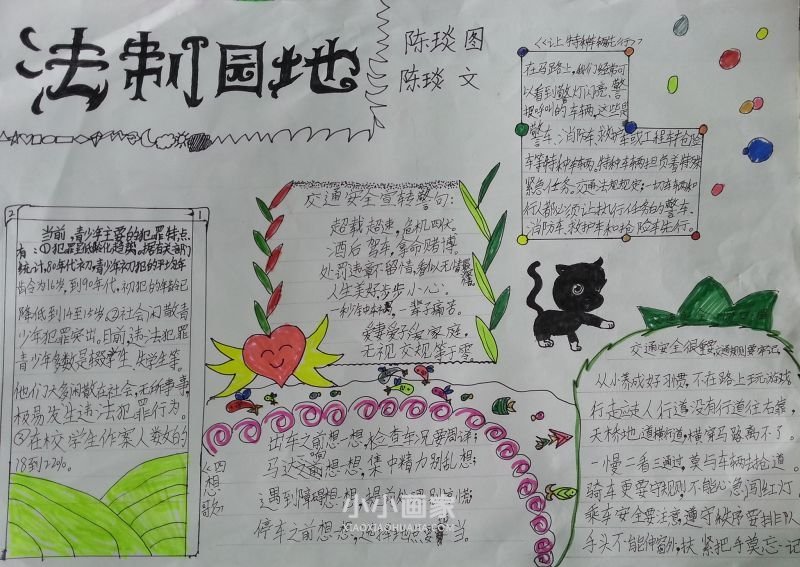 法制园地
陈琰 图
陈琰 文
《让特种车辆先行》
在马路上,我们经常可
以看到警灯闪亮、警
报呼叫的车辆,这些是
警车、消防车、救护车或工程车抢险
车等特种车辆。特种车辆担负着特殊
紧急任务,交通法规规定:一切车辆和
行人都必须让执行任务的警车、
消防车、救护车和抢险车先行。
2
1
当前,青少年主要的犯罪特点
有:①犯罪呈低龄化趋势。据有关部门
统计,80年代初,青少年初犯的平均年
龄为16岁,到90年代,初犯的年龄已
降低到14至15岁,②社会闲散青
少年犯罪突出。目前违法犯罪
青少年多数是辍学生、失学生等。
他们大多闲散在社会,无所事事,
极易发生违法犯罪行为。
③在校学生作案人数约
18到20%。
交通安全宣转警句:
超载超速,危机四伏。
酒后驾车,拿命赌博。
处罚违章不留情,看似无情
人生美好步步小心;
一辈子痛苦。
爱妻爱子爱家庭,
无视交规等于零。
《四想歌》
出车之前想一想,检查车况要周详;
马达之前想一想,集中精力别乱想;
遇到障碍想一想,提前
停车之前想一想,选择地点要妥当。
交通安全很重要,交通规则要牢记,
从小养成好习惯,不在路上玩游戏
行走应走人行道没有行道往右靠,
天桥地道横行道,横穿马路离不了。
一慢二看三通过,莫与车辆去抢道。
骑车更要守规则,不能心急闯红灯,
乘车安全要注意,遵守秩序要排队
手头不能伸窗外,扶紧把手莫忘记
小小画家
XIAOXIAOHUAJIA.COM